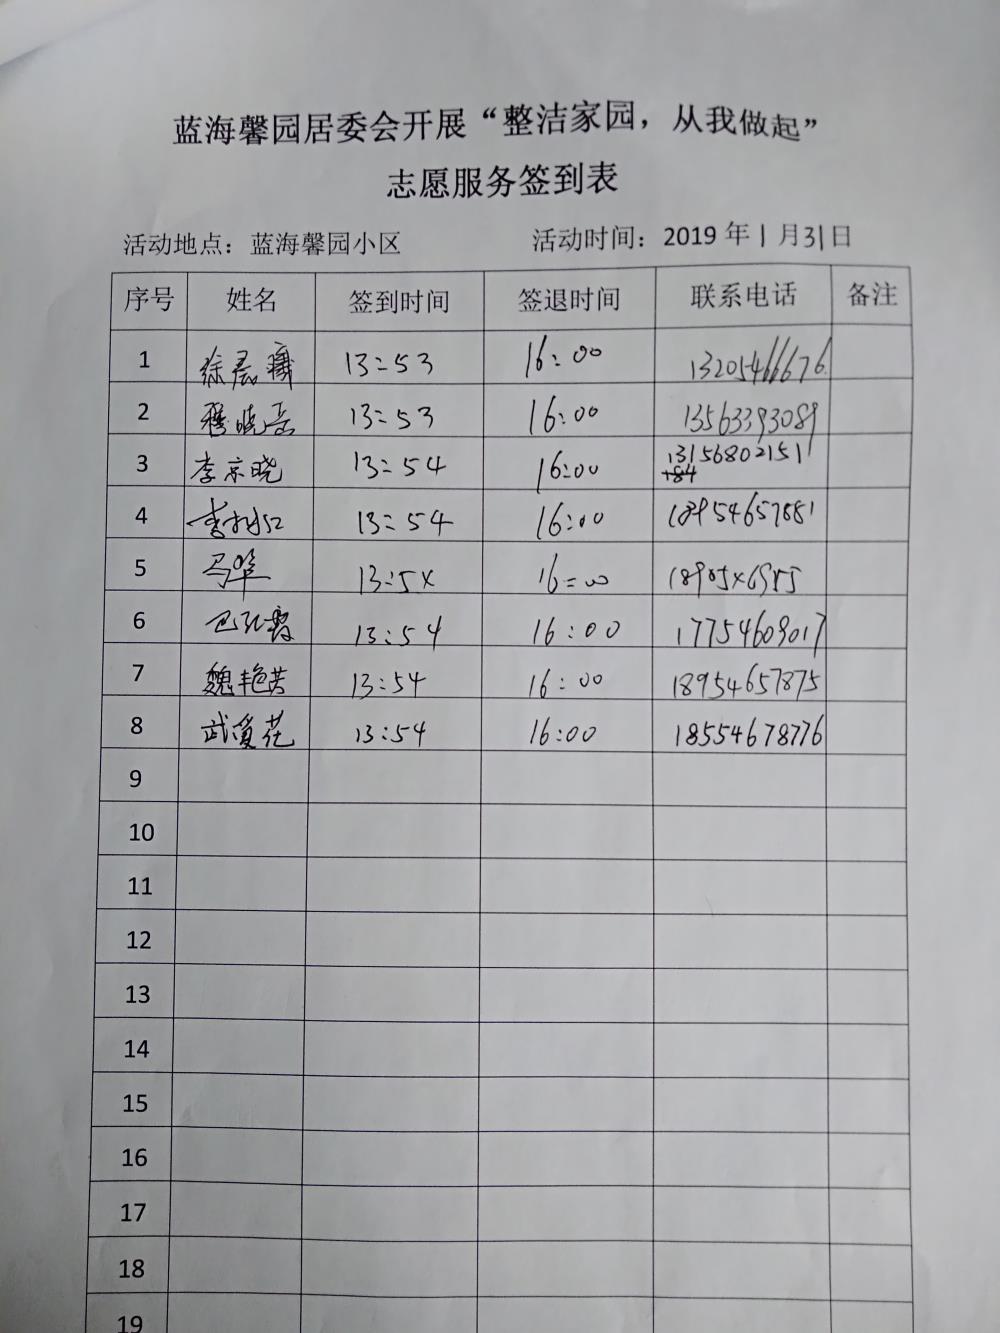 蓝海馨园居委会开展“整洁家园，从我做起”
志愿服务签到表
活动地点：蓝海馨园小区 活动时间：2019年1月31日
序号 姓名 签到时间 签退时间 联系电话 备注
1 13:53 16:00 13205466676
2 穆晓岳 13:53 16:00 13563393089
3 李京晓 13:54 16:00 13156802151
4 13:54 16:00 18954657881
5 马华 16:00
6 13:54 16:00 17754609017
7 魏艳芳 13:54 16:00 18954657875
8 武爱花 13:54 16:00 18554678776
9
10
11
12
13
14
15
16
17
18
19